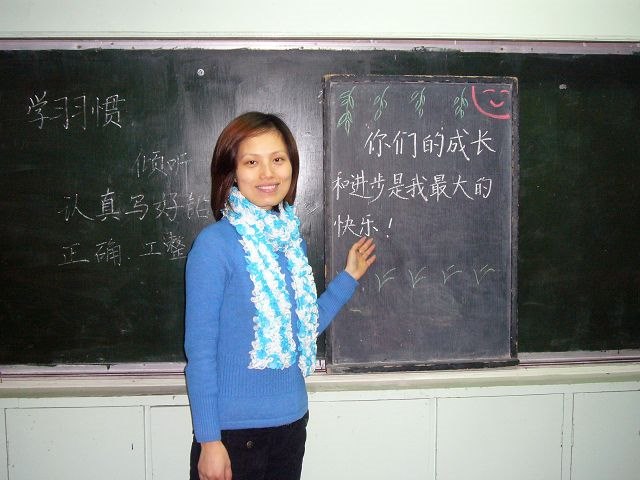 学习习惯
倾听
认真写好铅
正确、工整
你们的成长
和进步是我最大的
快乐！